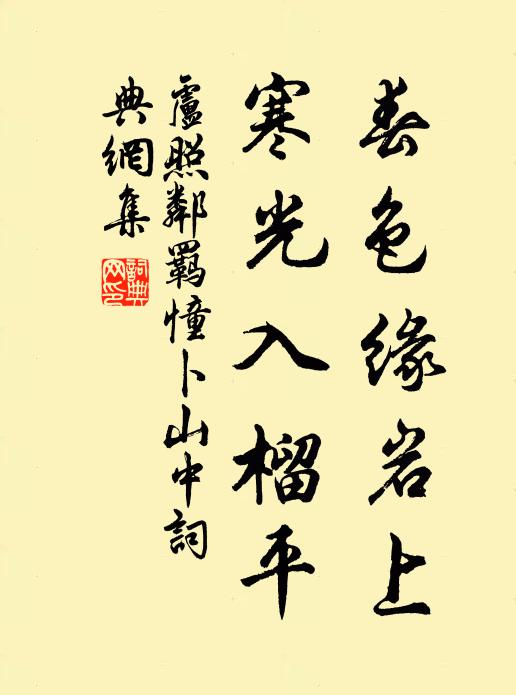 春色缘岩上
寒光入榴平
盧照鄰羈憧卜山中詞
典網集
詞典网印